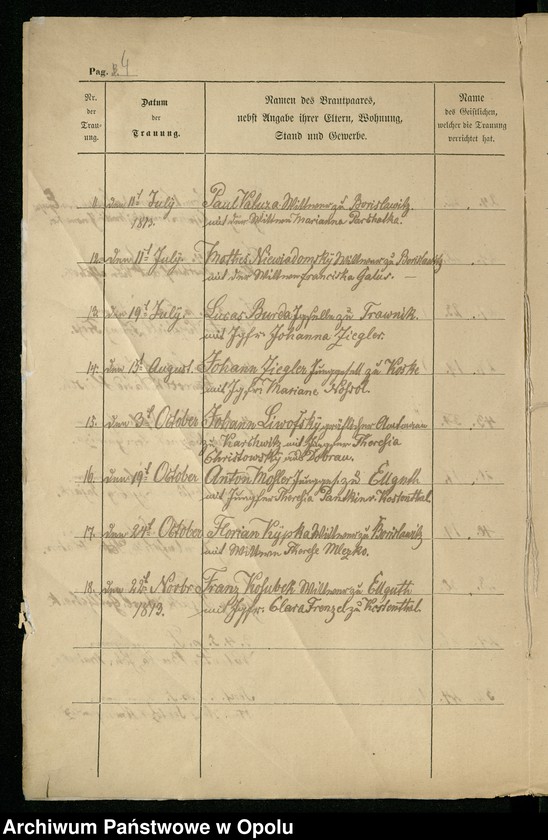 Pag. 4
Nr.
der
Trau-
ung.
Datum
der
Trauung.
Namen des Brautpaares,
nebst Angabe ihrer Eltern, Wohnung,
Stand und Gewerbe.
Name
des Geistlichen,
welcher die Trauung
verrichtet hat.
11. den 11t July Paul Wittwer zu Borislawitz
1813. mit der Wittwe Marianna
12. den 11t July Mathus Niewiadomsky Wittwer zu Borislawitz
mit der Wittwe Franciska Galus.
13. den 19t July Lucas Burda Jggselle zu Trawnik
mit Jgfr. Johanna Ziegler.
14. den August. Johann Ziegler Junggesell zu Koske
mit Jgfr. Mariane
15. den 3t October Johann
zu mit Jungfer Theresia
Christowsky aus Dobrau.
16. den 19t October Anton Mosler Jungges. zu Ellguth
mit Jungfer Theresia Kostenthal
17. den October Florian Wittwer zu Borislawitz
mit Wittwe Therese Mlezko.
18. den 22t Novbr. Franz Kosubek Wittwer zu Ellguth
1813. mit Jgfr. Clara Frenzel zu Kostenthal.
Archiwum Państwowe w Opolu